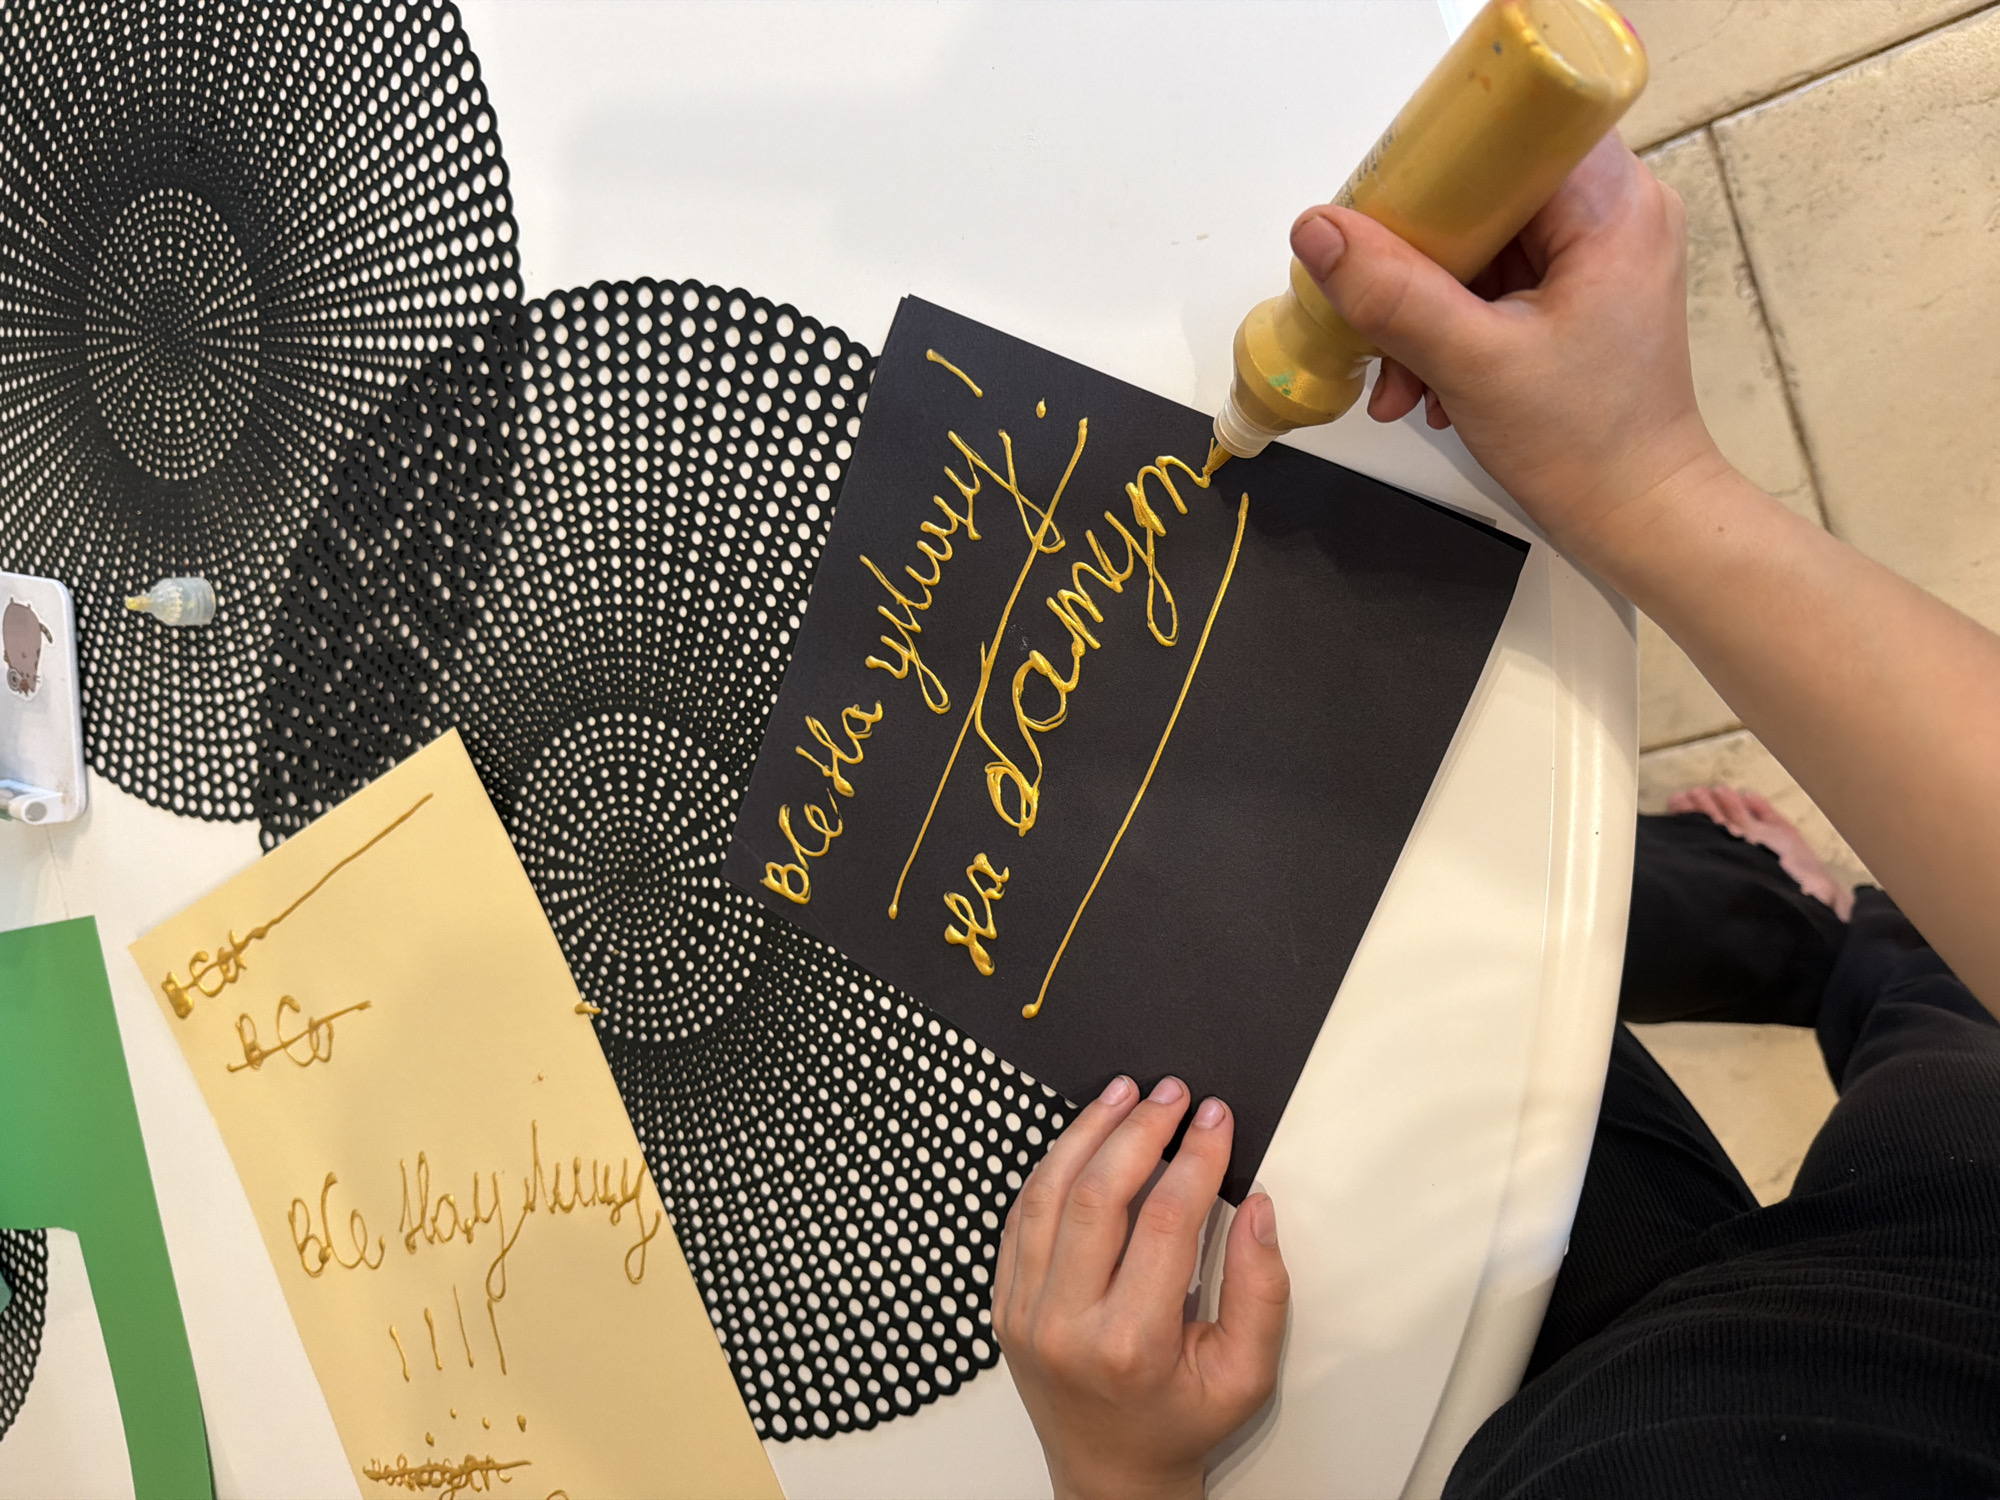 все на улицу!
на батут
все
все
все на улицу
!!!!